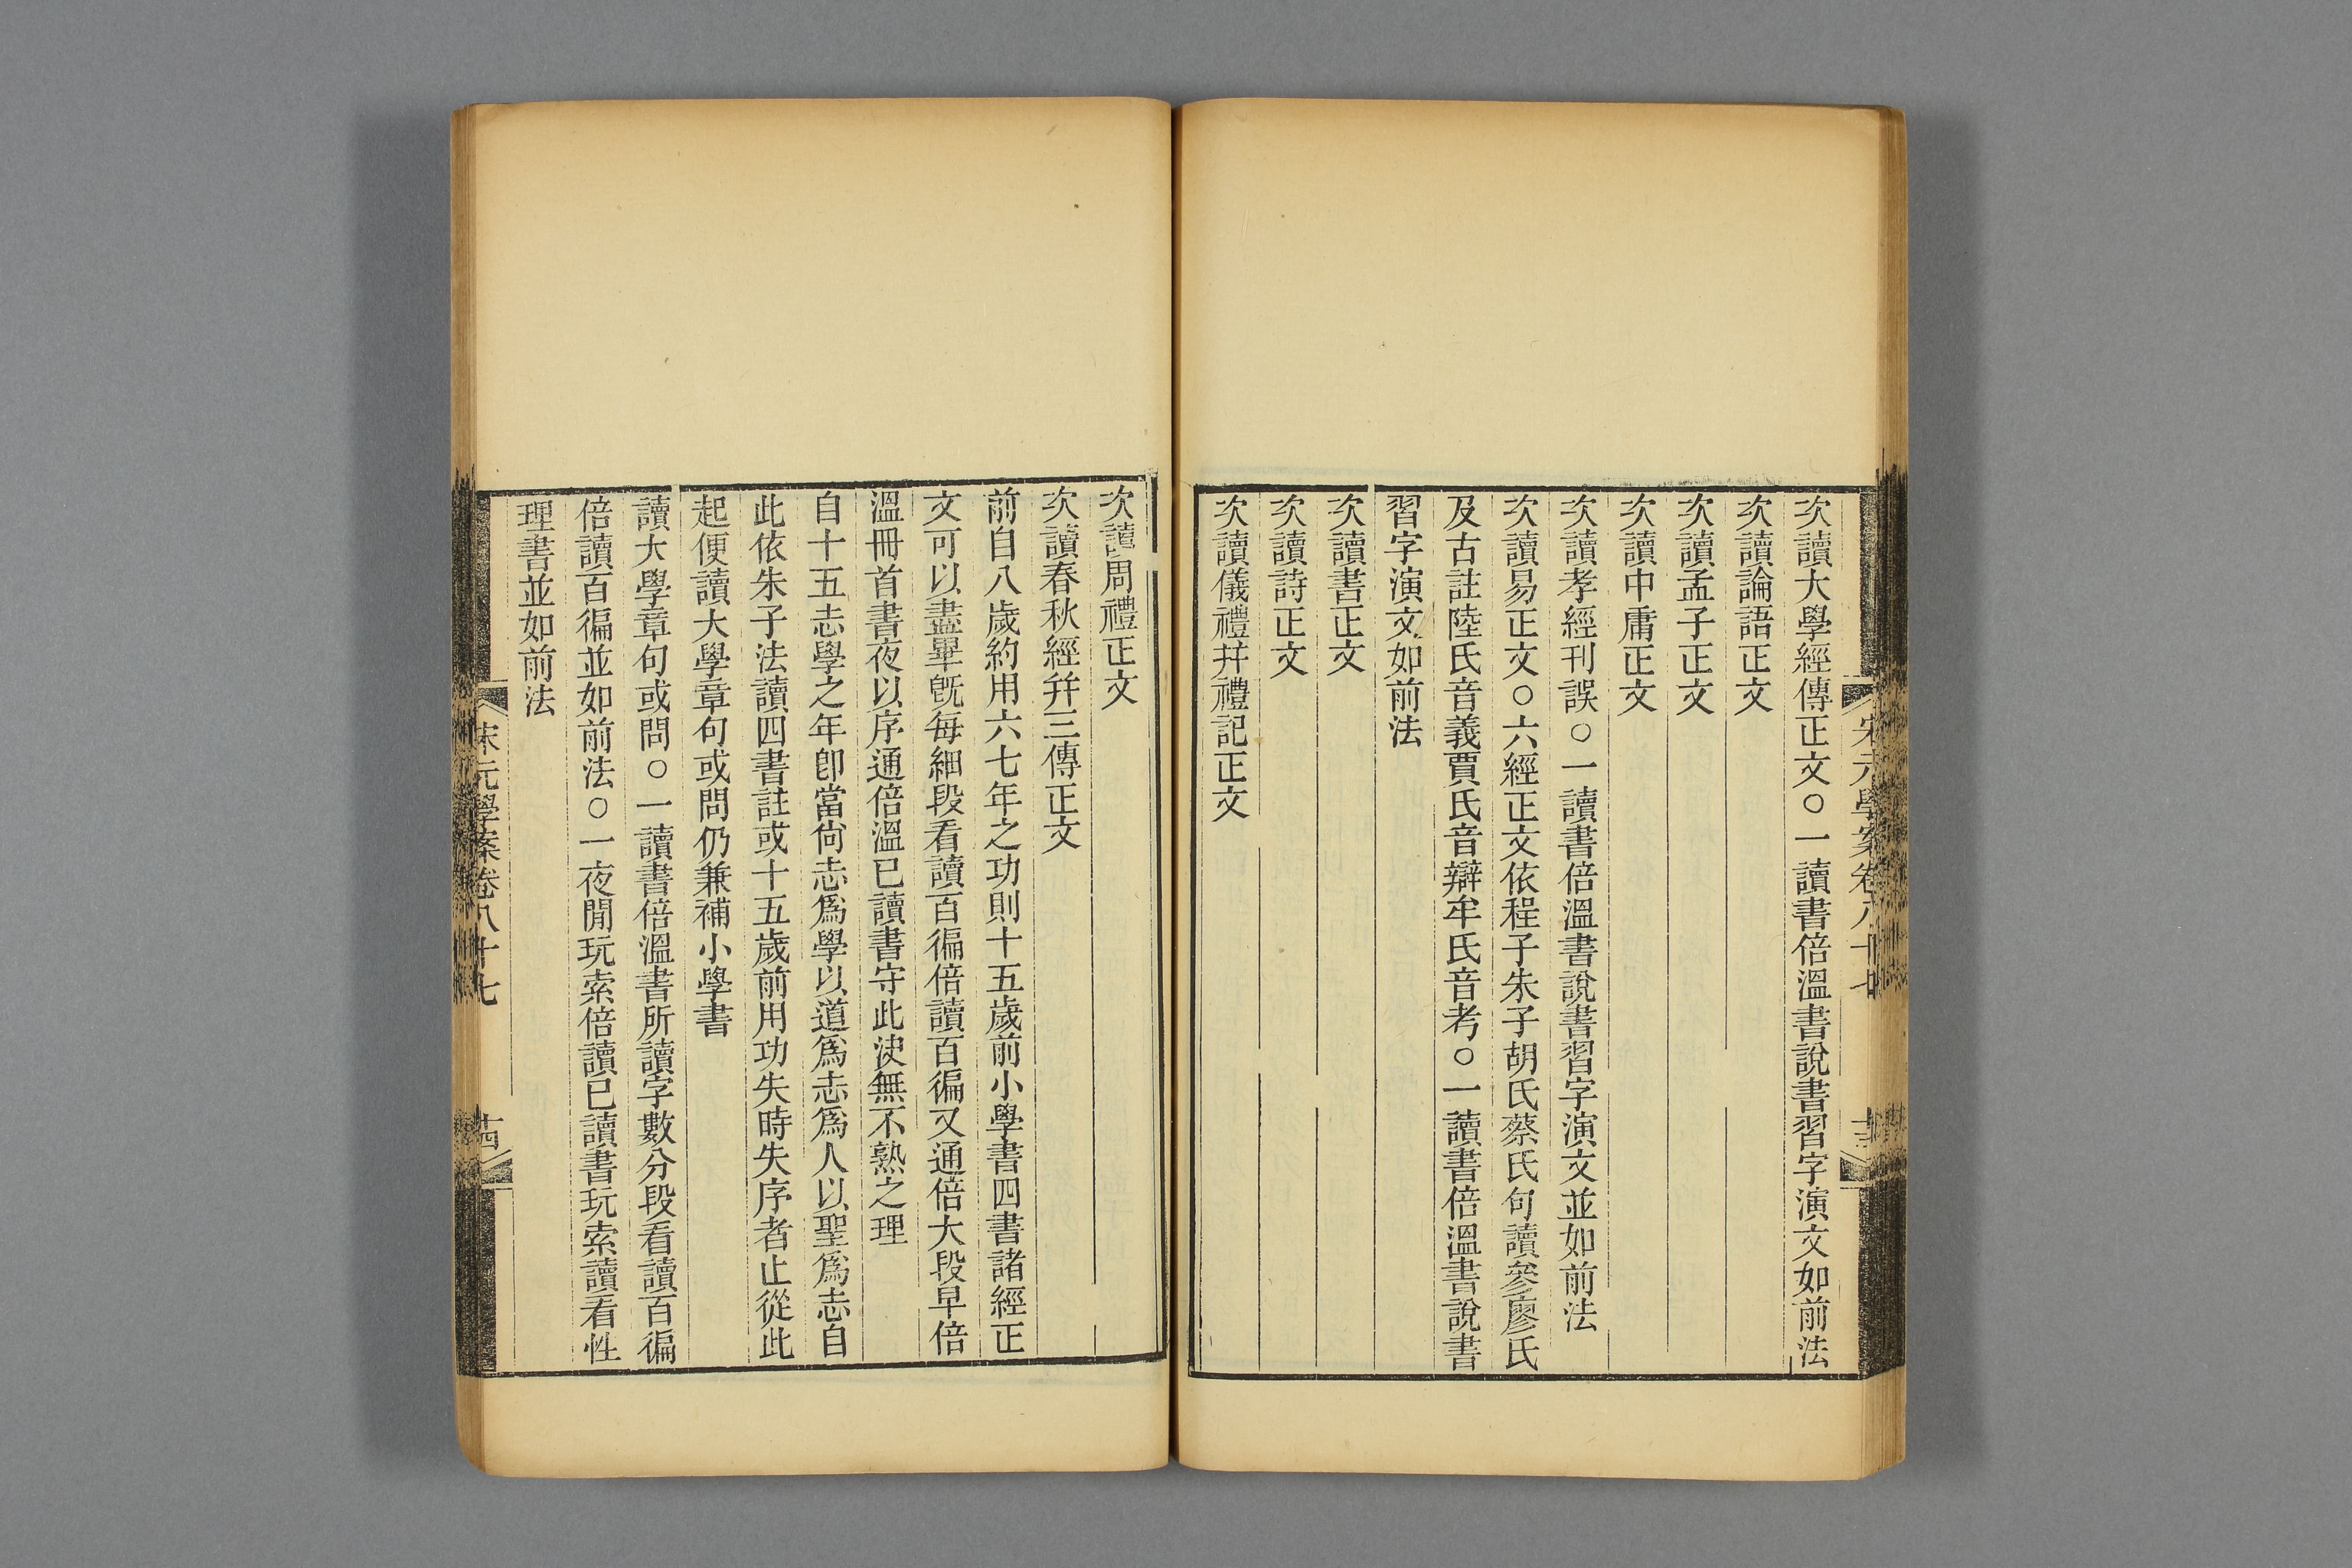 次讀大學經傳正文○一讀書倍溫書說書習字演文如前法
次讀論語正文
次讀孟子正文
次讀中庸正文
次讀孝經刊誤○一讀書倍溫書說書習字演文並如前法
次讀易正文○六經正文依程子朱子胡氏蔡氏句讀參廖氏
及古註陸氏音義賈氏音辯牟氏音考○一讀書倍溫書說書
習字演文如前法
次讀書正文
次讀詩正文
次讀儀禮幷禮記正文
次讀周禮正文
次讀春秋經幷三傳正文
前自八歲約用六七年之功則十五歲前小學書四書諸經正
文可以盡畢旣每細段看讀百徧倍讀百徧又通倍大段早倍
溫冊首書夜以序通倍溫已讀書守此決無不熟之理
自十五志學之年卽當尙志爲學以道爲志爲人以聖爲志自
此依朱子法讀四書註或十五歲前用功失時失序者止從此
起便讀大學章句或問仍兼補小學書
讀大學章句或問○一讀書倍溫書所讀字數分段看讀百徧
倍讀百徧並如前法○一夜閒玩索倍讀已讀書玩索讀看性
理書並如前法
宋元學案卷八十七
十四